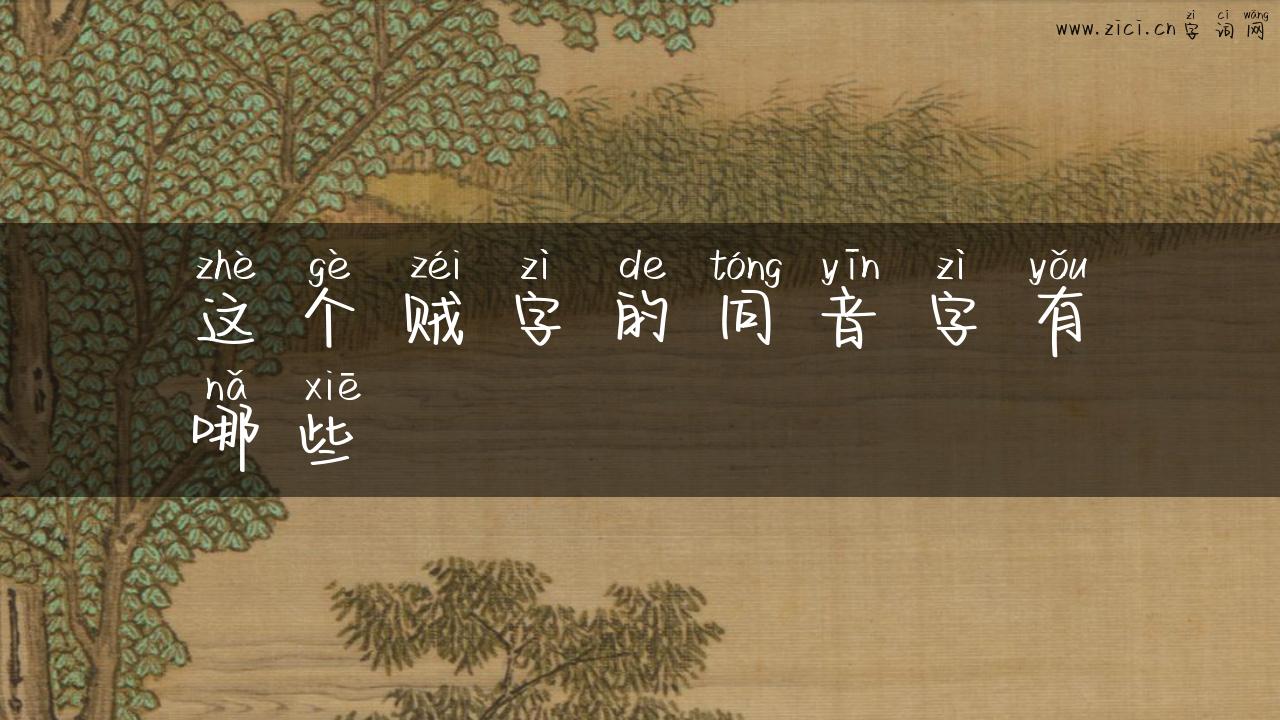 zì cí wǎng
www.zici.cn字词网
zhè gè zéi zì de tóng yīn zì yǒu
这个贼字的同音字有
nǎ xiē
哪些